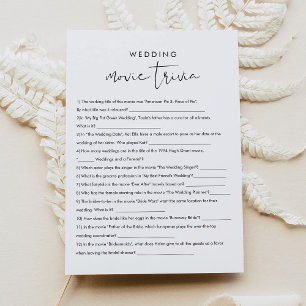 WEDDING
movie trivia
1) The working title of this movie was "American Pie 3: Piece of Pie".
By what title was it released?
2) In "My Big Fat Greek Wedding", Toula's father has a cure for all ailments.
What is it?
3) In "The Wedding Date", Kat Ellis hires a male escort to pose as her date at the
wedding of her sister. Who played Kat?
4) How many weddings are in the title of the 1994 Hugh Grant movie,
" Weddings and a Funeral"?
5) Which actor plays the singer in the movie "The Wedding Singer"?
6) What is the grooms profession in "My Best Friend's Wedding"?
7) What fairytale is the movie "Ever After" loosely based on?
8) Who has the female starring role in the movie "The Wedding Planner"?
9) The brides-to-be in the movie "Bride Wars" want the same location for their
wedding. What is it?
10) How does the bride like her eggs in the movie "Runaway Bride"?
11) In the movie "Father of the Bride, which comedian plays the over-the-top
wedding coordinator?
12) In the movie "Bridesmaids", what does Helen give to all the guests as a favor
when leaving the bridal shower?